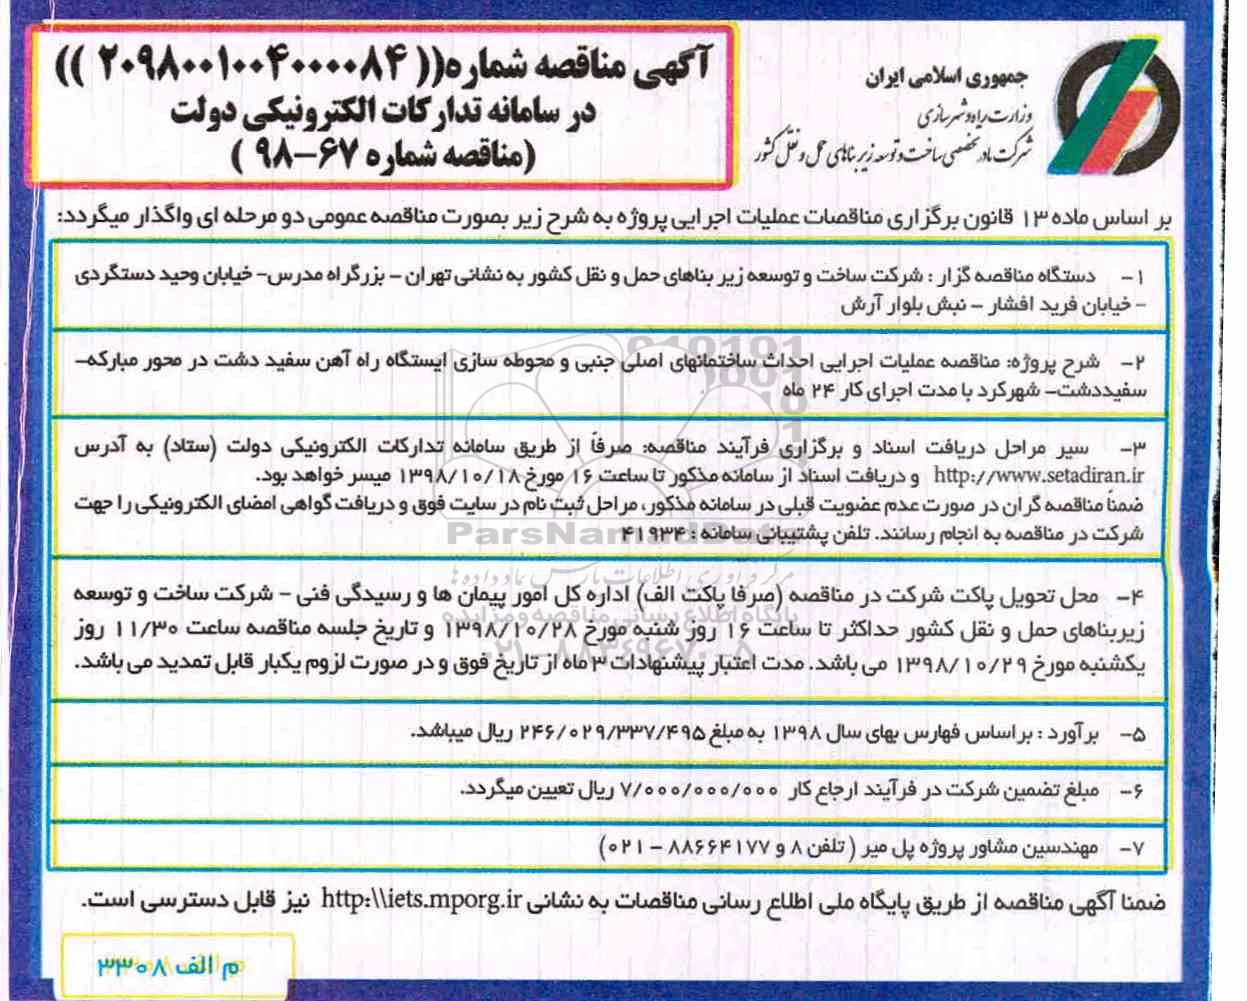 جمهوری اسلامی ایران
وزارت راه و شهرسازی
شرکت مادر تخصصی ساخت و توسعه زیربناهای حمل و نقل کشور
آگهی مناقصه شماره(( ۲۰۹۸۰۰۱۰۰۴۰۰۰۰۸۴ ))
در سامانه تدارکات الکترونیکی دولت
(مناقصه شماره ۶۷-۹۸ )
بر اساس ماده ۱۳ قانون برگزاری مناقصات عملیات اجرایی پروژه به شرح زیر بصورت مناقصه عمومی دو مرحله ای واگذار میگردد:
۱- دستگاه مناقصه گزار : شرکت ساخت و توسعه زیر بناهای حمل و نقل کشور به نشانی تهران – بزرگراه مدرس- خیابان وحید دستگردی
- خیابان فرید افشار – نبش بلوار آرش
۲- شرح پروژه: مناقصه عملیات اجرایی احداث ساختمانهای اصلی جنبی و محوطه سازی ایستگاه راه آهن سفید دشت در محور مبارکه-
سفیددشت- شهرکرد با مدت اجرای کار ۲۴ ماه
۳- سیر مراحل دریافت اسناد و برگزاری فرآیند مناقصه: صرفاً از طریق سامانه تدارکات الکترونیکی دولت (ستاد) به آدرس
http://www.setadiran.ir و دریافت اسناد از سامانه مذکور تا ساعت ۱۶ مورخ ۱۳۹۸/۱۰/۱۸ میسر خواهد بود.
ضمناً مناقصه گران در صورت عدم عضویت قبلی در سامانه مذکور، مراحل ثبت نام در سایت فوق و دریافت گواهی امضای الکترونیکی را جهت
شرکت در مناقصه به انجام رسانند. تلفن پشتیبانی سامانه : ۴۱۹۳۴
ParsNamadData
مرکز فرآوری اطلاعات پارس نماد داده ها
۴- محل تحویل پاکت شرکت در مناقصه (صرفا پاکت الف) اداره کل امور پیمان ها و رسیدگی فنی – شرکت ساخت و توسعه
پایگاه اطلاع رسانی مناقصه و مزایده
زیربناهای حمل و نقل کشور حداکثر تا ساعت ۱۶ روز شنبه مورخ ۱۳۹۸/۱۰/۲۸ و تاریخ جلسه مناقصه ساعت ۱۱/۳۰ روز
۰۲۱-۸۸۳۴۹۶۷۰-۵
یکشنبه مورخ ۱۳۹۸/۱۰/۲۹ می باشد. مدت اعتبار پیشنهادات ۳ ماه از تاریخ فوق و در صورت لزوم یکبار قابل تمدید می باشد.
۵- برآورد : براساس فهارس بهای سال ۱۳۹۸ به مبلغ ۲۴۶/۰۲۹/۳۳۷/۴۹۵ ریال میباشد.
۶- مبلغ تضمین شرکت در فرآیند ارجاع کار ۷/۰۰۰/۰۰۰/۰۰۰ ریال تعیین میگردد.
۷- مهندسین مشاور پروژه پل میر ( تلفن ۸ و ۸۸۶۶۴۱۷۷ – ۰۲۱)
ضمنا آگهی مناقصه از طریق پایگاه ملی اطلاع رسانی مناقصات به نشانی http:\\iets.mporg.ir نیز قابل دسترسی است.
م الف ۳۳۰۸